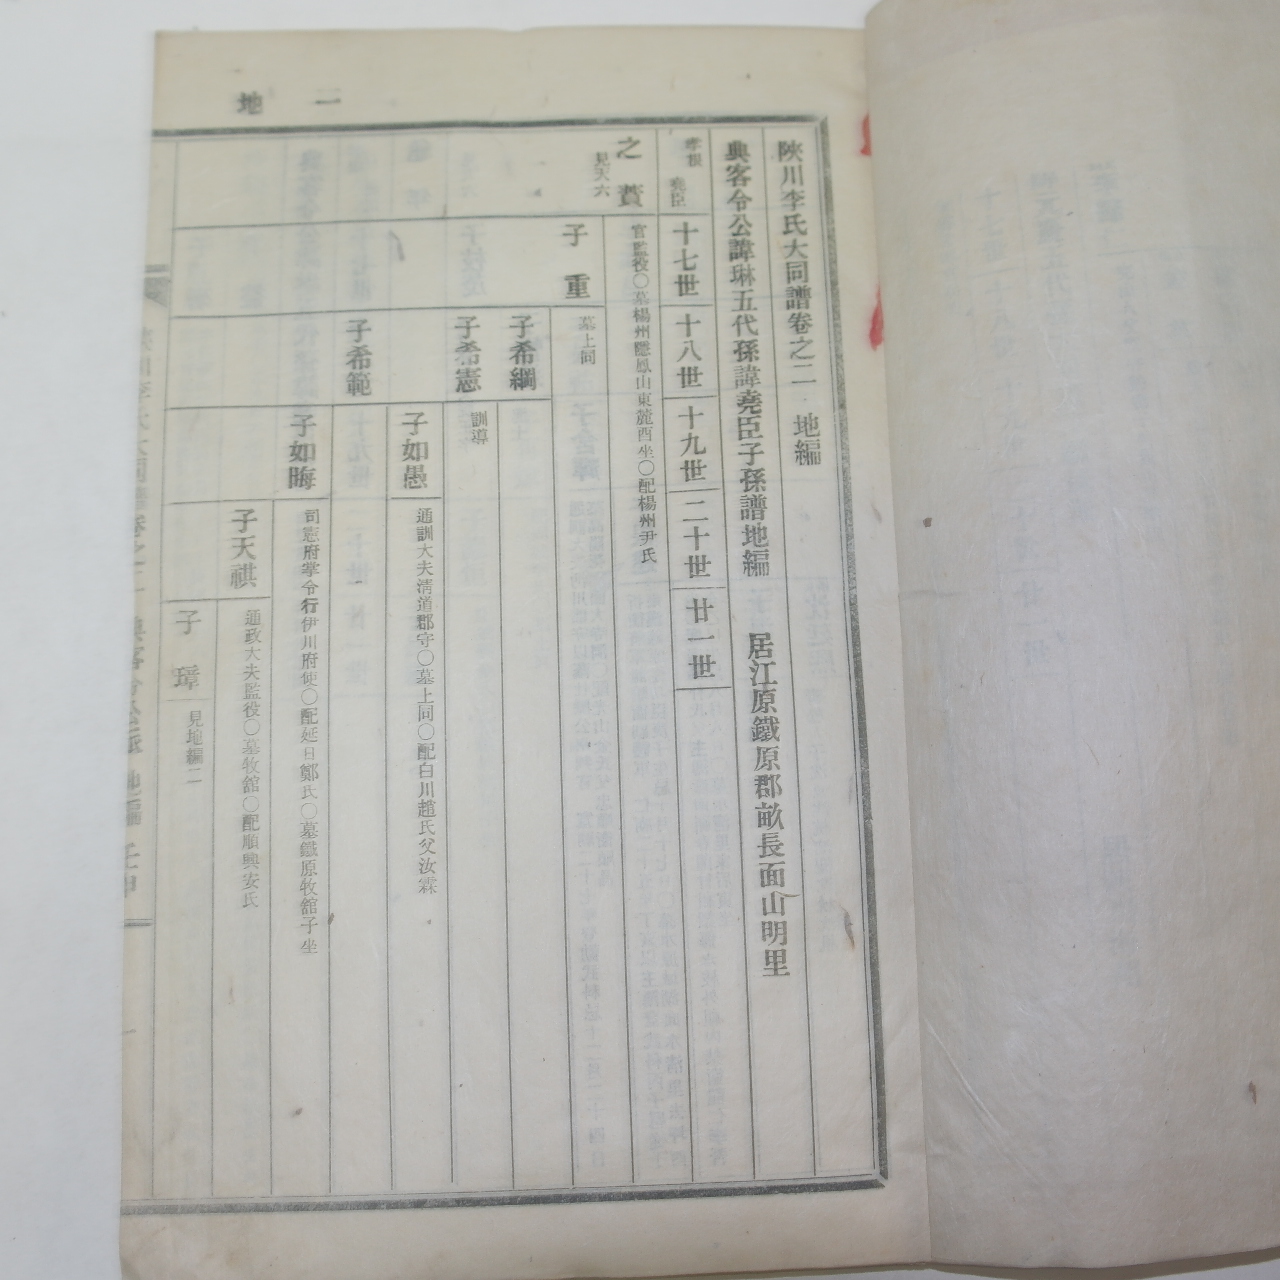 地一
陜川李氏大同譜卷之二 地編
典客令公諱琳五代孫諱堯臣子孫譜地編 居江原鐵原郡畝長面山明里
孝根 堯臣 十七世 十八世 十九世 二十世 廿一世
之贇 見天六
官監役○墓楊州隱鳳山東麓酉坐○配楊州尹氏
子重
墓上同
子希綱
子希憲
訓導
子如愚
通訓大夫淸道郡守○墓上同○配白川趙氏父汝霖
子希範
子如晦
司憲府掌令行伊川府使○配延日鄭氏○墓鐵原牧舘子坐
子天祺
通政大夫監役○墓牧舘○配順興安氏
子璋
見地編二